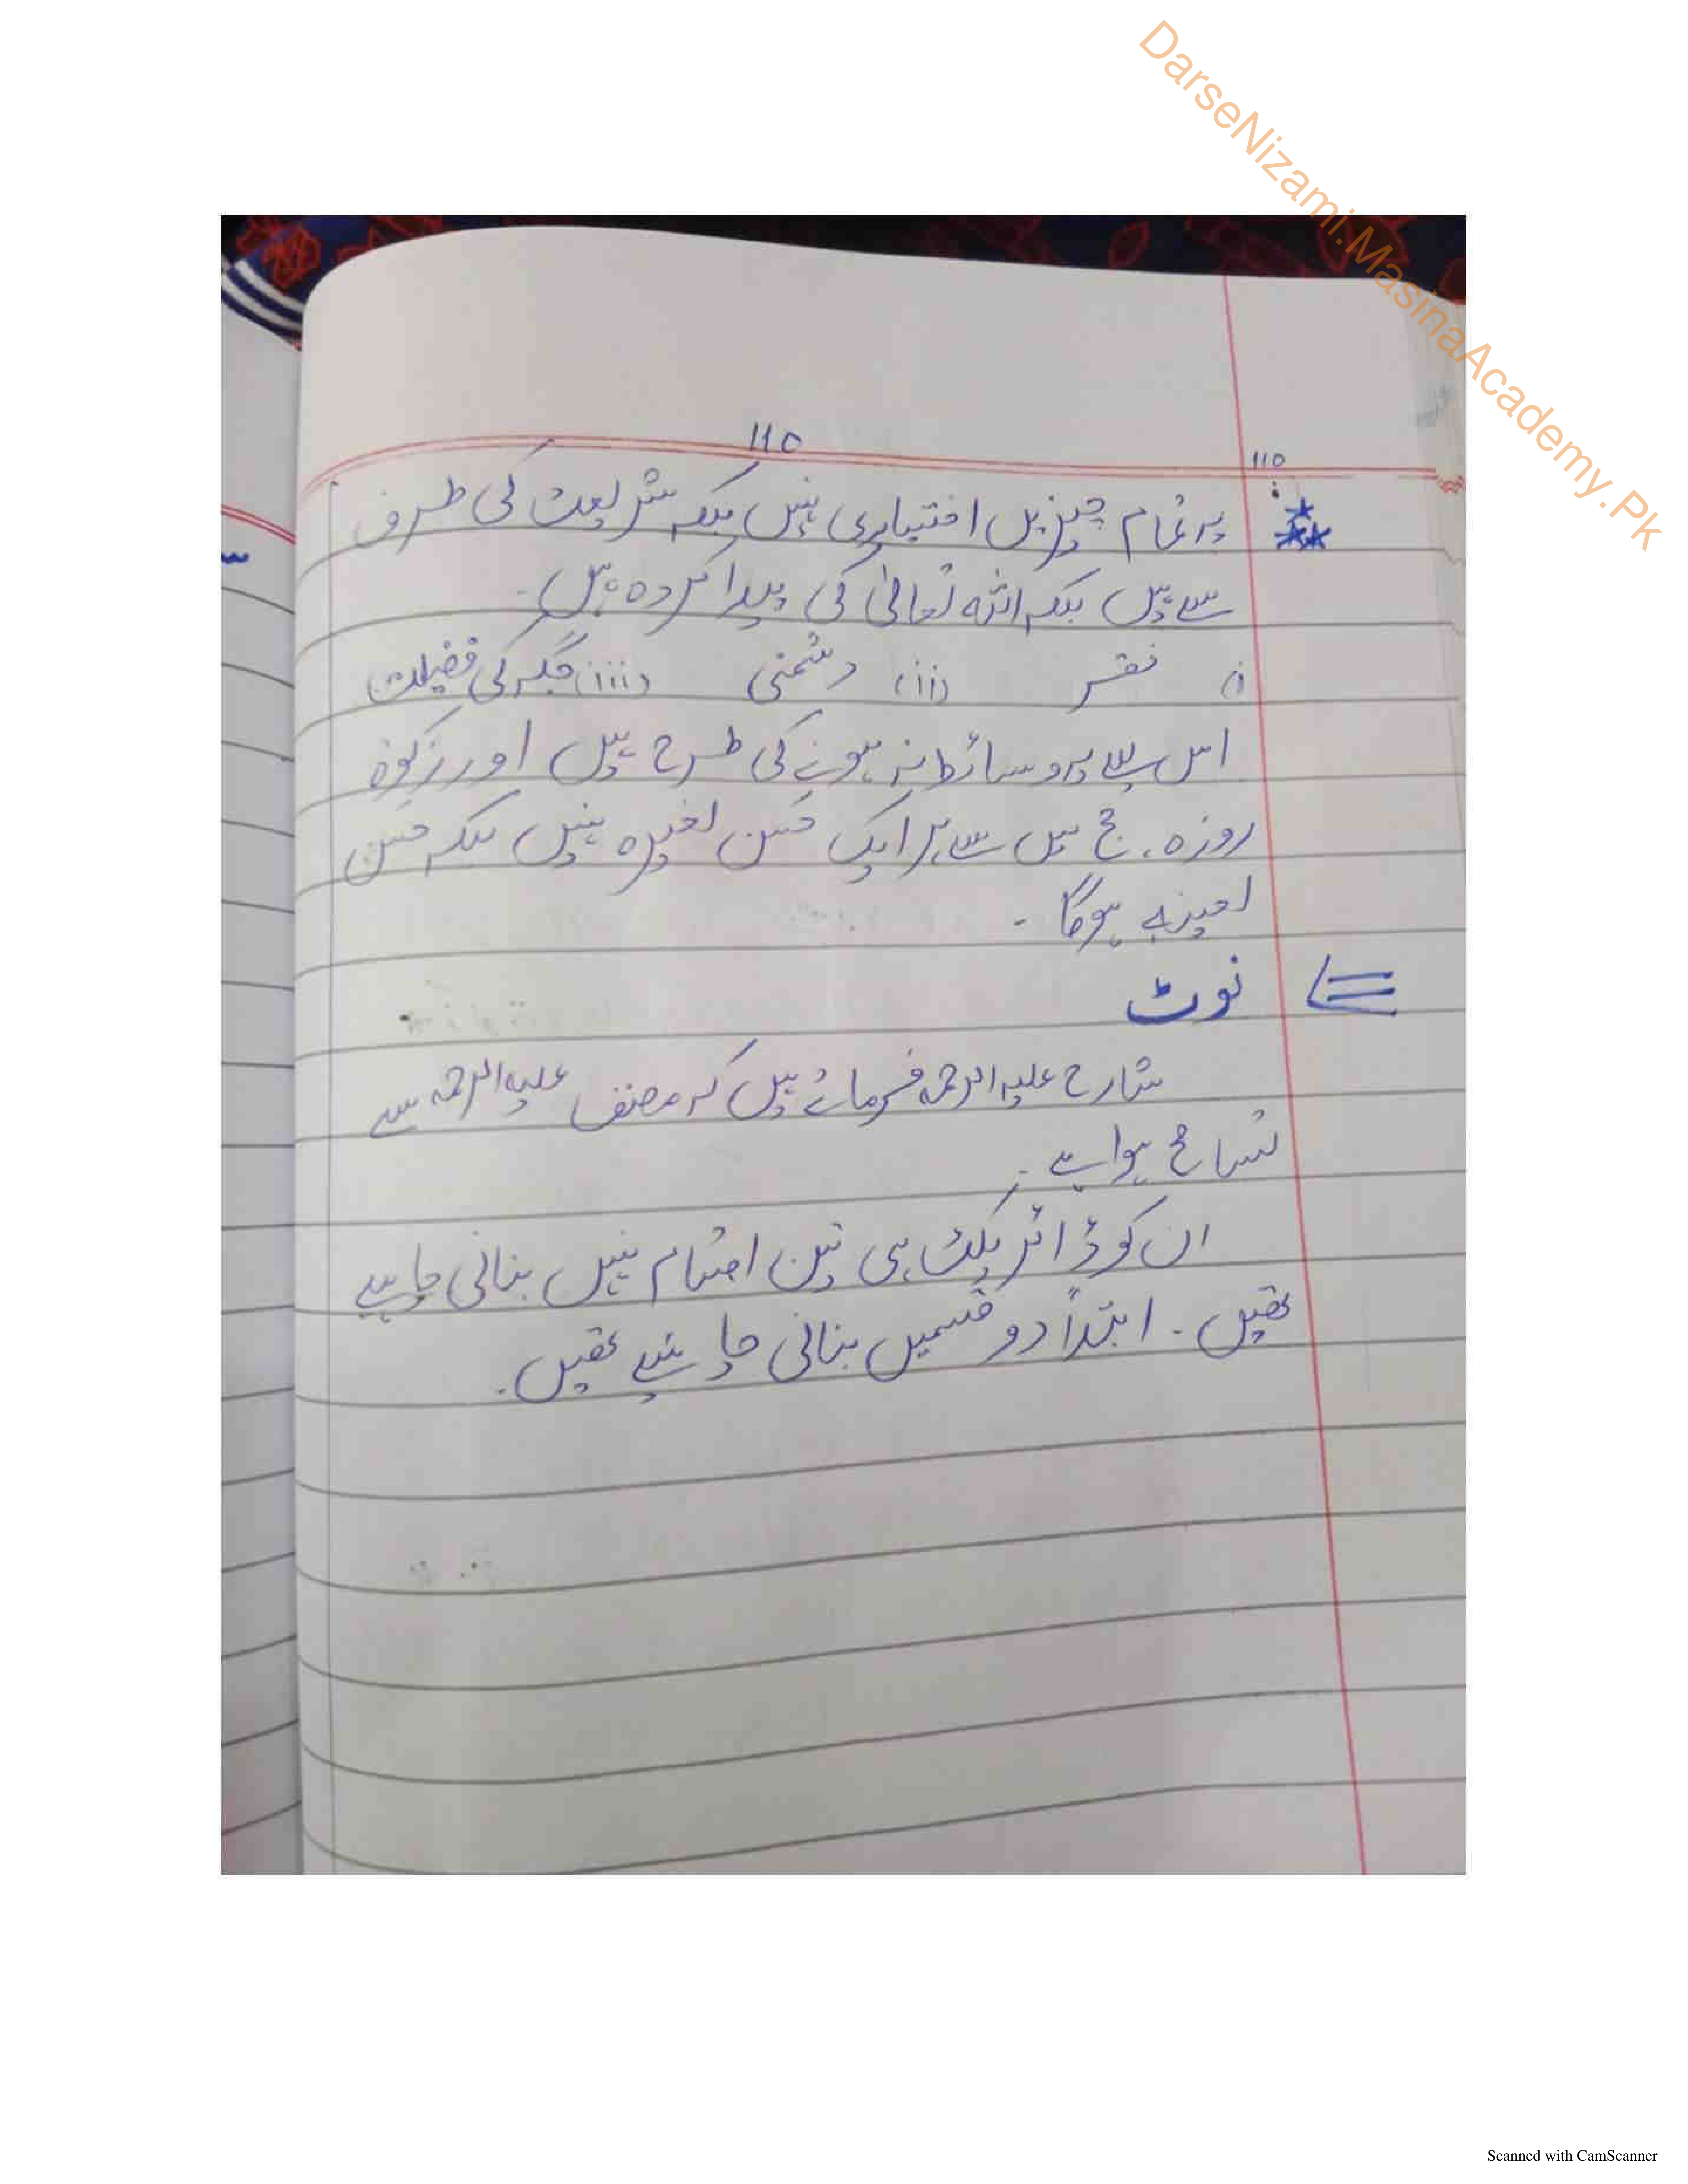 DarseNizami.MasinaAcademy.Pk
110
110
یہ تمام چیزیں اختیاری نہیں بلکہ شریعت کی طرف
سے ہیں بلکہ اللہ تعالیٰ کی پیدا کردہ ہیں۔
(i) فقر (ii) دشمنی (iii) جگہ کی فضیلت
اس لیے یہ وسائط نہ ہونے کی طرح ہیں اور زکوٰۃ
روزہ، حج میں سے ہر ایک حسن لغیرہ نہیں بلکہ حسن
لعینہ ہوگا۔
نوٹ
شارح علیہ الرحمہ فرماتے ہیں کہ مصنف علیہ الرحمہ سے
تسامح ہوا ہے۔
ان کو ڈائریکٹ ہی تین اقسام نہیں بنانی چاہیے
تھیں۔ ابتداً دو قسمیں بنانی چاہئیے تھیں۔
Scanned with CamScanner